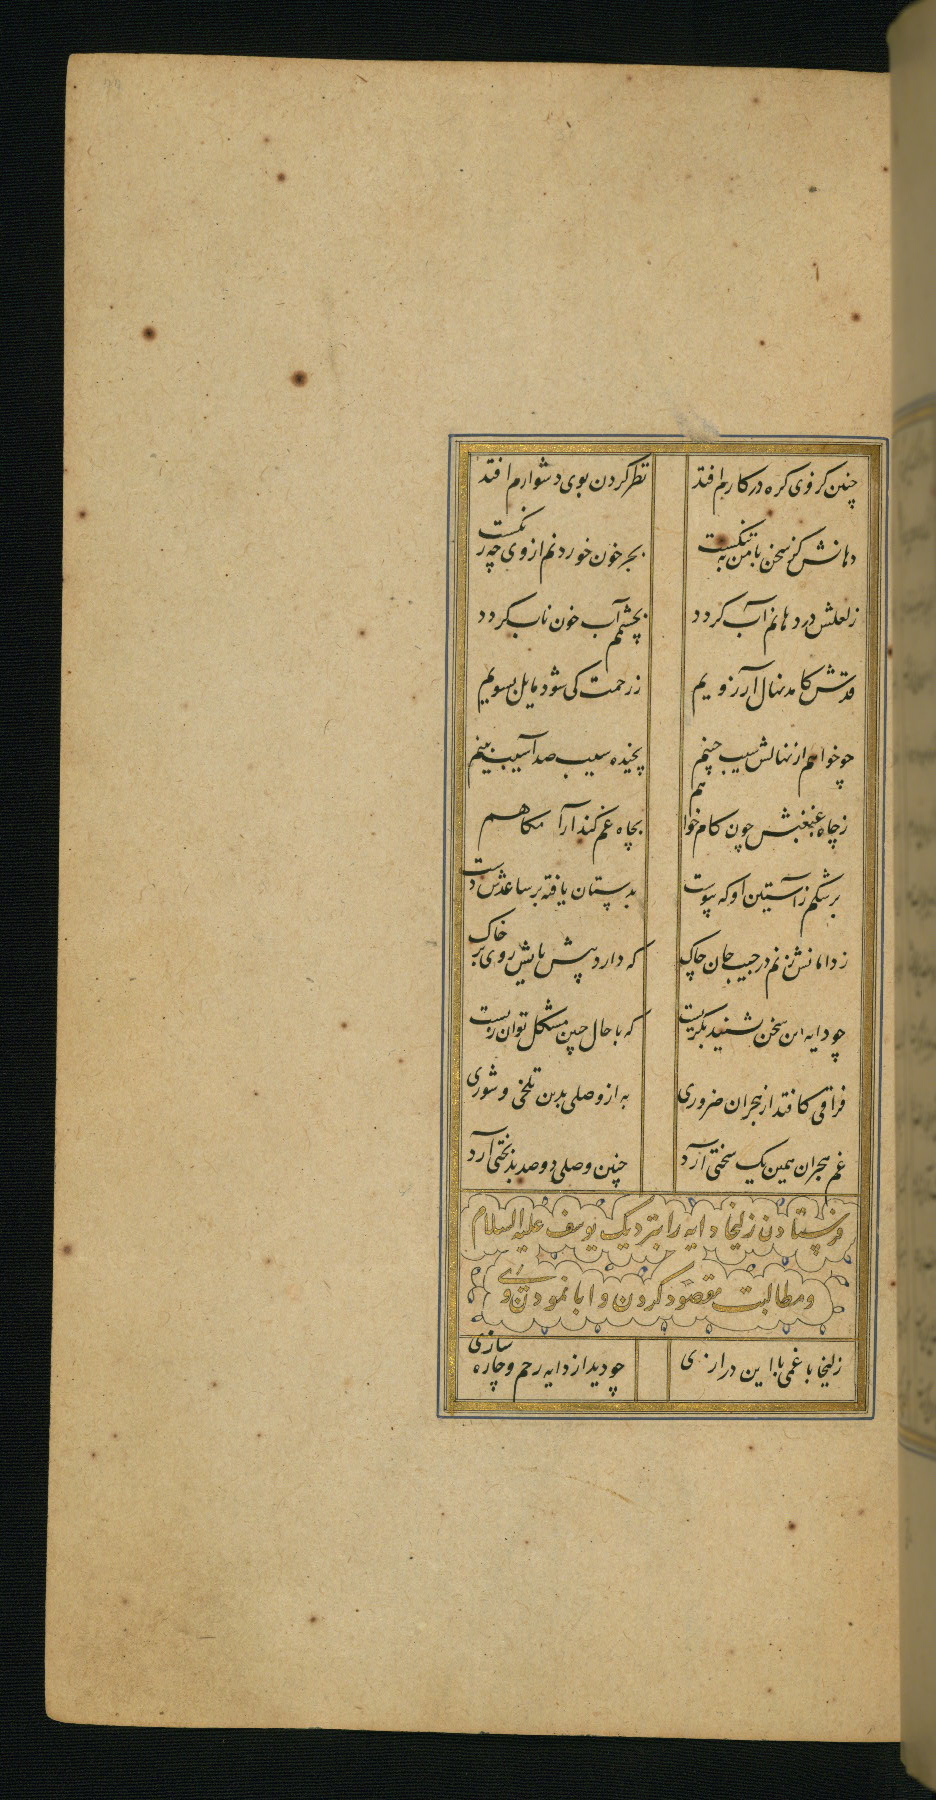 چنین کز وی کره در کارم افتد نظر کردن بوی دشوارم افتد
دهانش کز سخن با من به تنکست بجز خون خوردنم از وی چه رنکست
ز لعلش در دهانم آب کردد بچشمم آب خون ناب کردد
قدش کامد نهال آرزویم ز رحمت کی شود مایل بسویم
چو خواهم از نهالش سیب چینم نچیده سیب صد آسیب بینم
ز چاه غبغبش چون کام خواهم بچاه غم کند آرامکاهم
برشکم ز آستین او که پیوست بدستان یافته بر ساعدش دست
ز دامانش زنم در جیب جان چاک که دارد پیش پایش روی بر خاک
چو دایه این سخن بشنید بکریست که با حال چنین مشکل توان زیست
فراقی کافتد از هجران ضروری به از وصلی بدین تلخی و شوری
غم هجران همین یک سختی آرد چنین وصلی دو صد بدبختی آرد
فرستادن زلیخا دایه را بنزدیک یوسف علیه السلام
و مطالبت مقصود کردن و ابا نمودن وی
زلیخا با غمی با این درازی چو دید از دایه رحم و چاره سازی